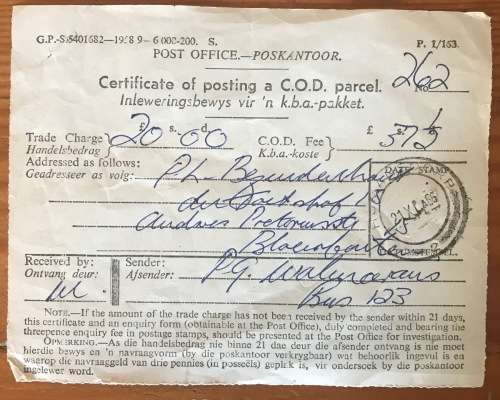 G.P.-S.5401682—1958 9—6 000-200. S. P. 1/163.
POST OFFICE.—POSKANTOOR.
Certificate of posting a C.O.D. parcel. No. 262
Inleweringsbewys vir 'n k.b.a.-pakket.
£ s. d. £
Trade Charge 20-00 C.O.D. Fee
Handelsbedrag K.b.a.-koste
Addressed as follows:
Geadresseer as volg:
DATE STAMP
Andries Pretoriusstr
DATUMSTEMPEL
Received by: Sender: P.G.
Ontvang deur: Afsender:
Bus 123
NOTE.—If the amount of the trade charge has not been received by the sender within 21 days,
this certificate and an enquiry form (obtainable at the Post Office), duly completed and bearing the
threepence enquiry fee in postage stamps, should be presented at the Post Office for investigation.
OPMERKING.—As die handelsbedrag nie binne 21 dae deur die afsender ontvang is nie moet
hierdie bewys en 'n navraagvorm (by die poskantoor verkrygbaar) wat behoorlik ingevul is en
waarop die navraaggeld van drie pennies (in posseëls) geplak is, vir ondersoek by die poskantoor
ingelewer word.